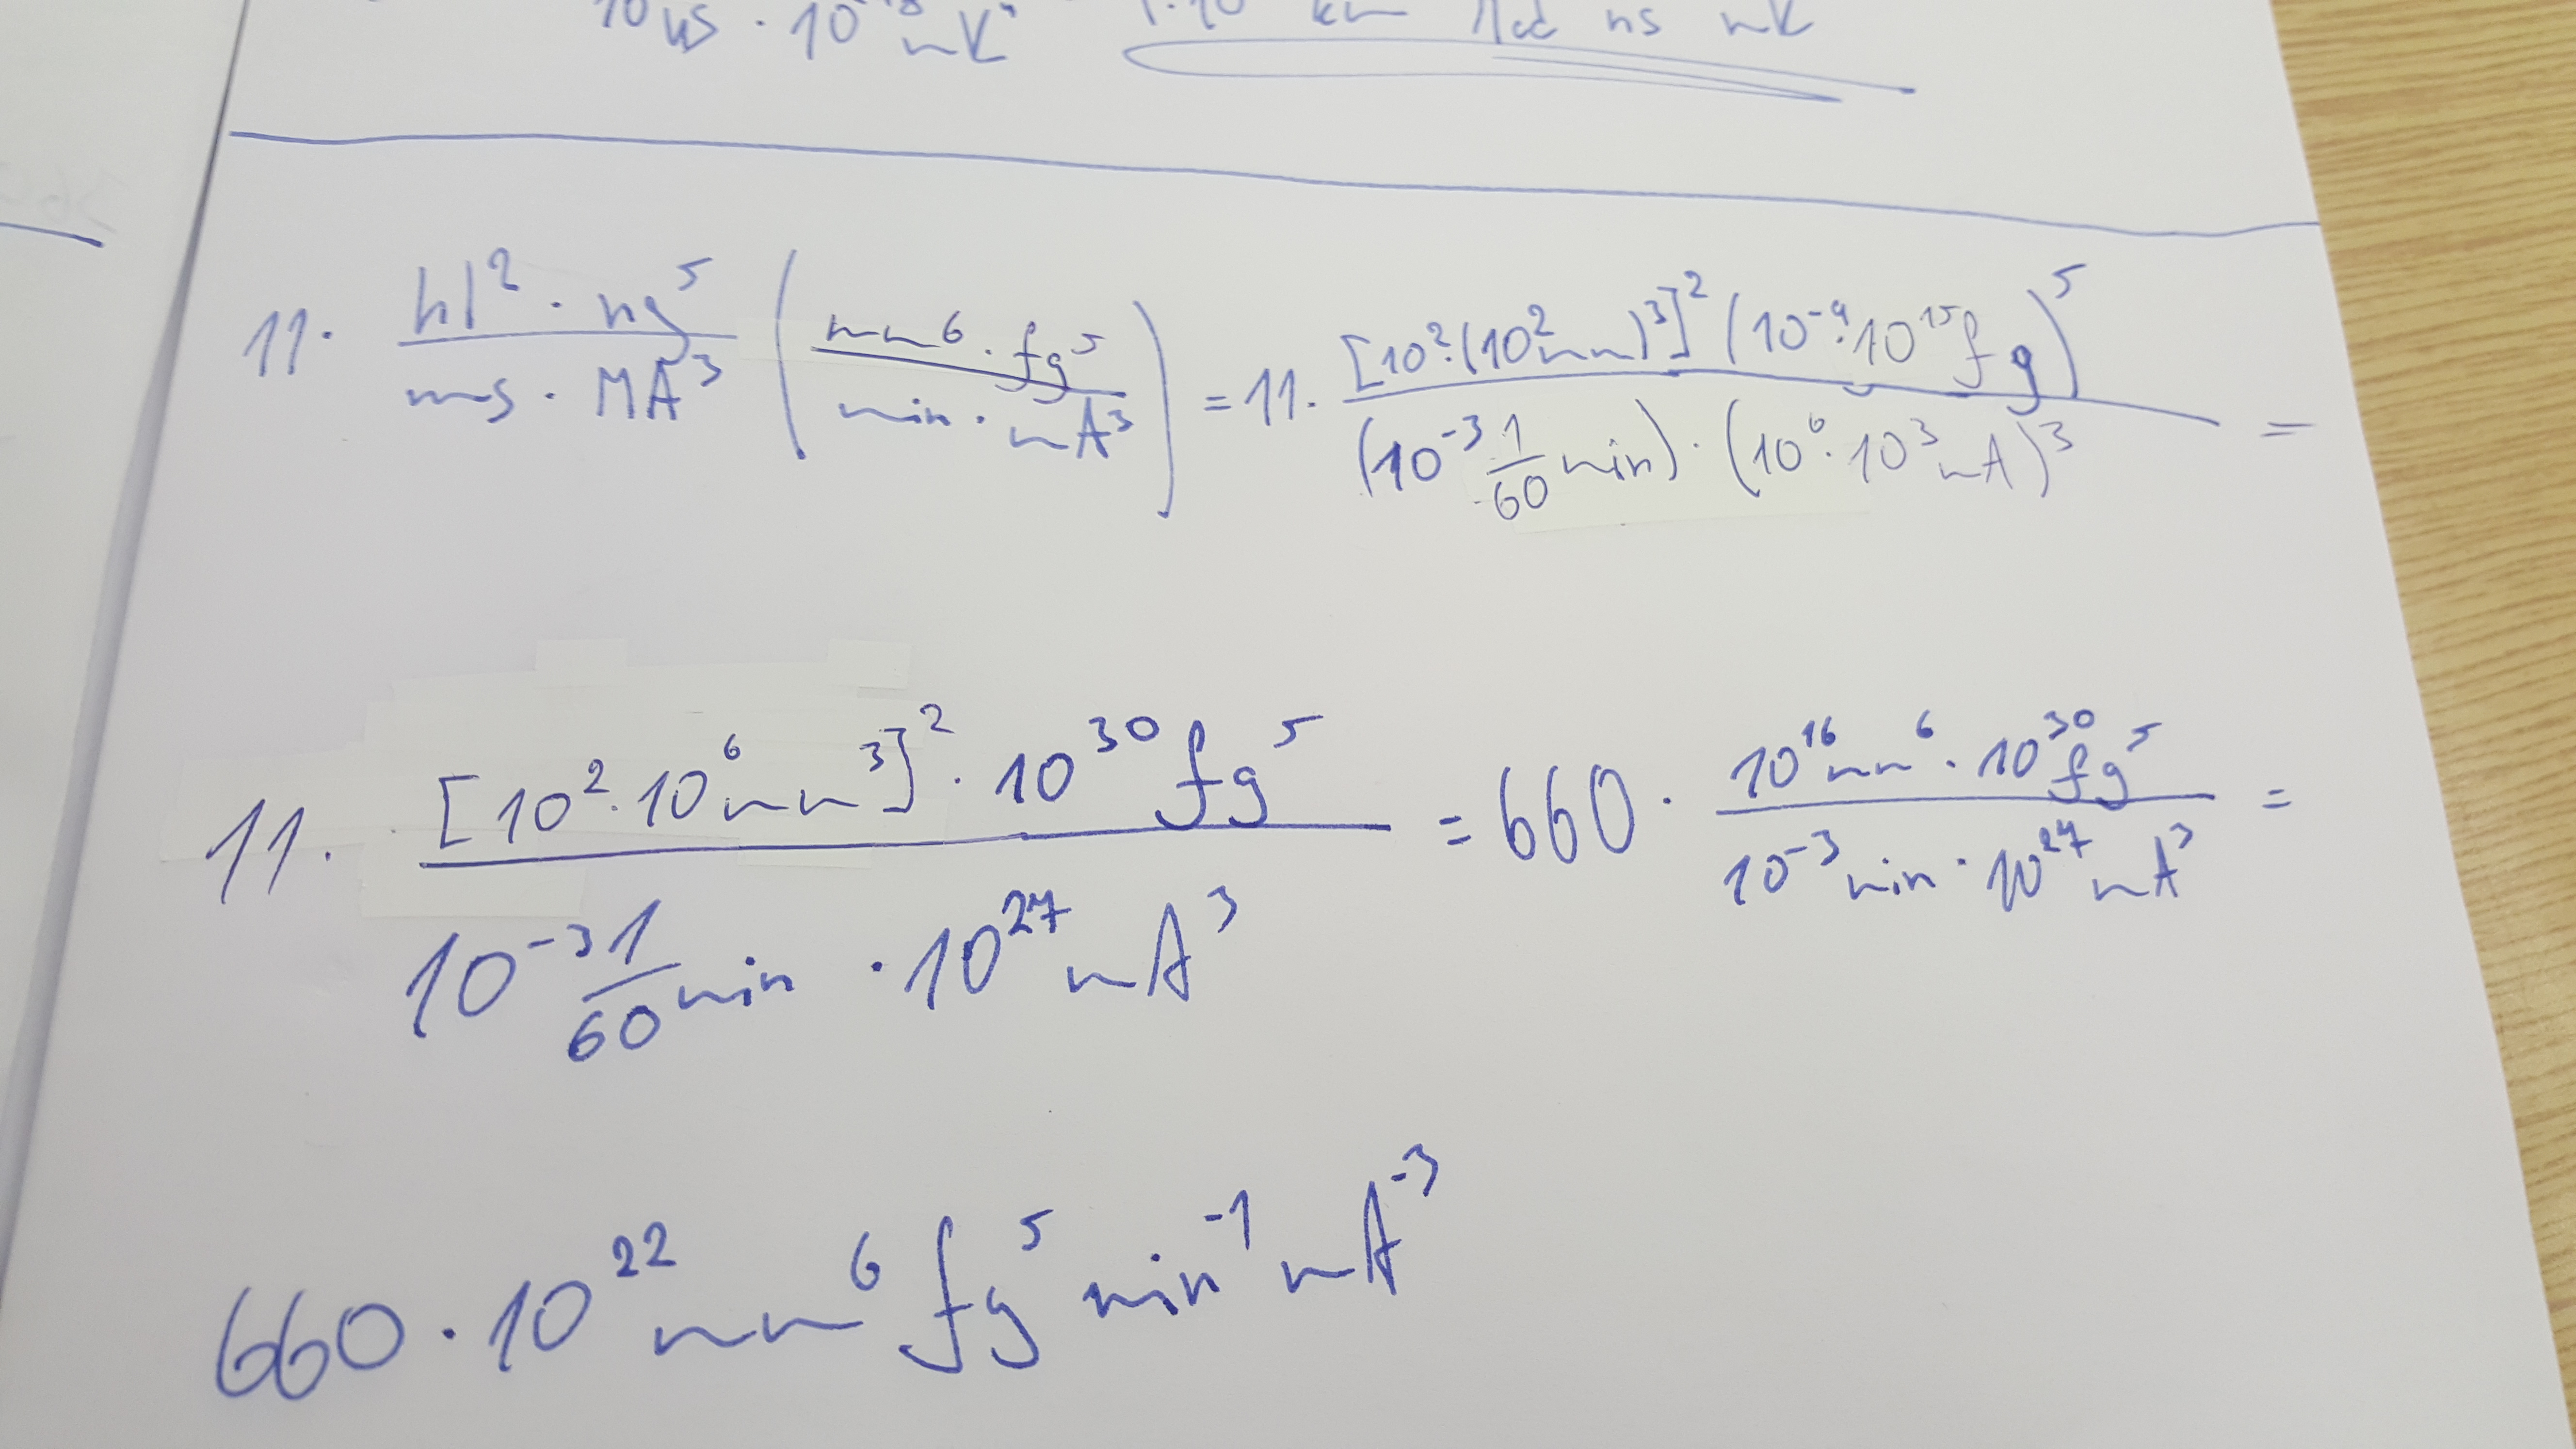 10 μs · 10⁻¹⁸ mK
11 · hl² · ng⁵ / ms · MA³ ( mm⁶ · fg⁵ / min · mA³ ) = 11 · [10² · (10² mm)³]² (10⁻⁹ · 10¹⁵ fg)⁵ / (10⁻³ 1/60 min) · (10⁶ · 10³ mA)³ =
11 · [10² · 10⁶ mm³]² · 10³⁰ fg⁵ / 10⁻³ 1/60 min · 10²⁷ mA³ = 660 · 10¹⁶ mm⁶ · 10³⁰ fg⁵ / 10⁻³ min · 10²⁷ mA³ =
660 · 10²² mm⁶ fg⁵ min⁻¹ mA⁻³